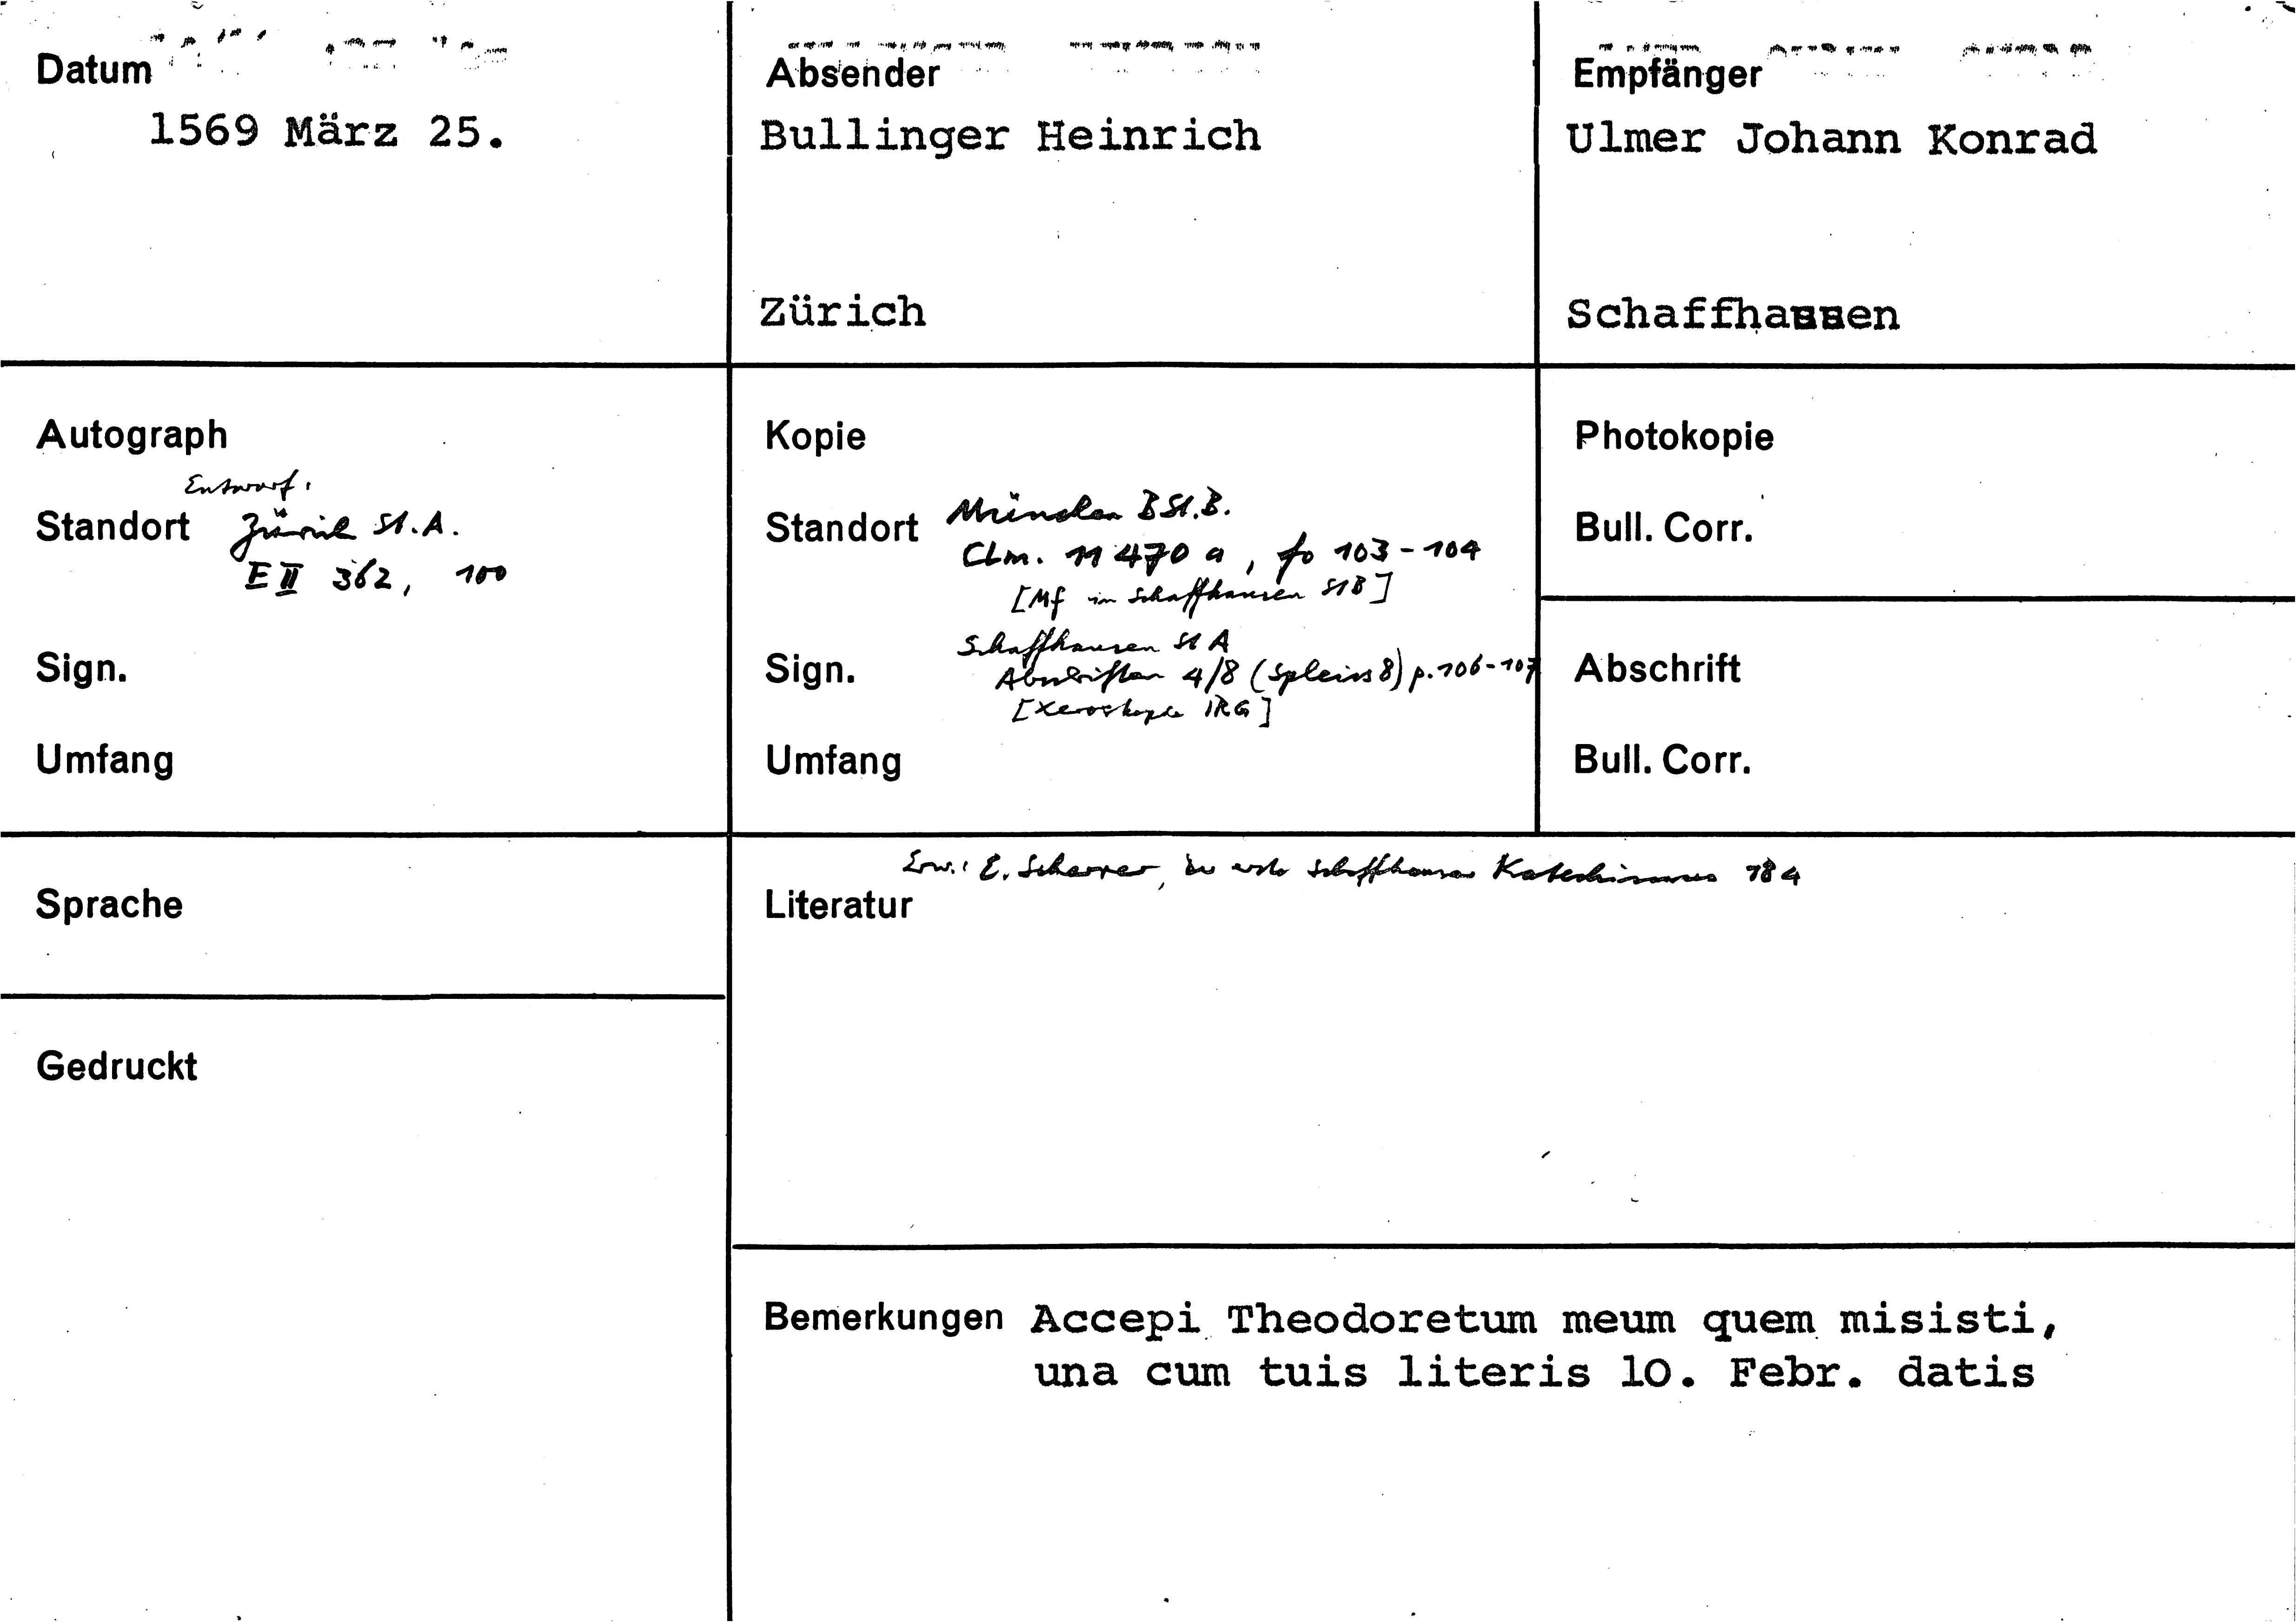 Datum
1569 März 25.
Absender
Bullinger Heinrich
Zürich
Empfänger
Ulmer Johann Konrad
Schaffhausen
Autograph
Entwurf:
Standort Zürich St.A.
E II 362, 100
Sign.
Umfang
Kopie
Standort München BSt.B.
Clm. 11 470 a, fo 103-104
[Mf in Schaffhausen StB]
Schaffhausen StA
Sign. Abschriften 4/8 (Spleiss 8) p. 106-107
[Xeroxkopie IRG]
Umfang
Photokopie
Bull. Corr.
Abschrift
Bull. Corr.
Sprache
Gedruckt
Erw.: E. Scherrer, Der erste Schaffhauser Katechismus 184
Literatur
Bemerkungen Accepi Theodoretum meum quem misisti,
una cum tuis literis 10. Febr. datis